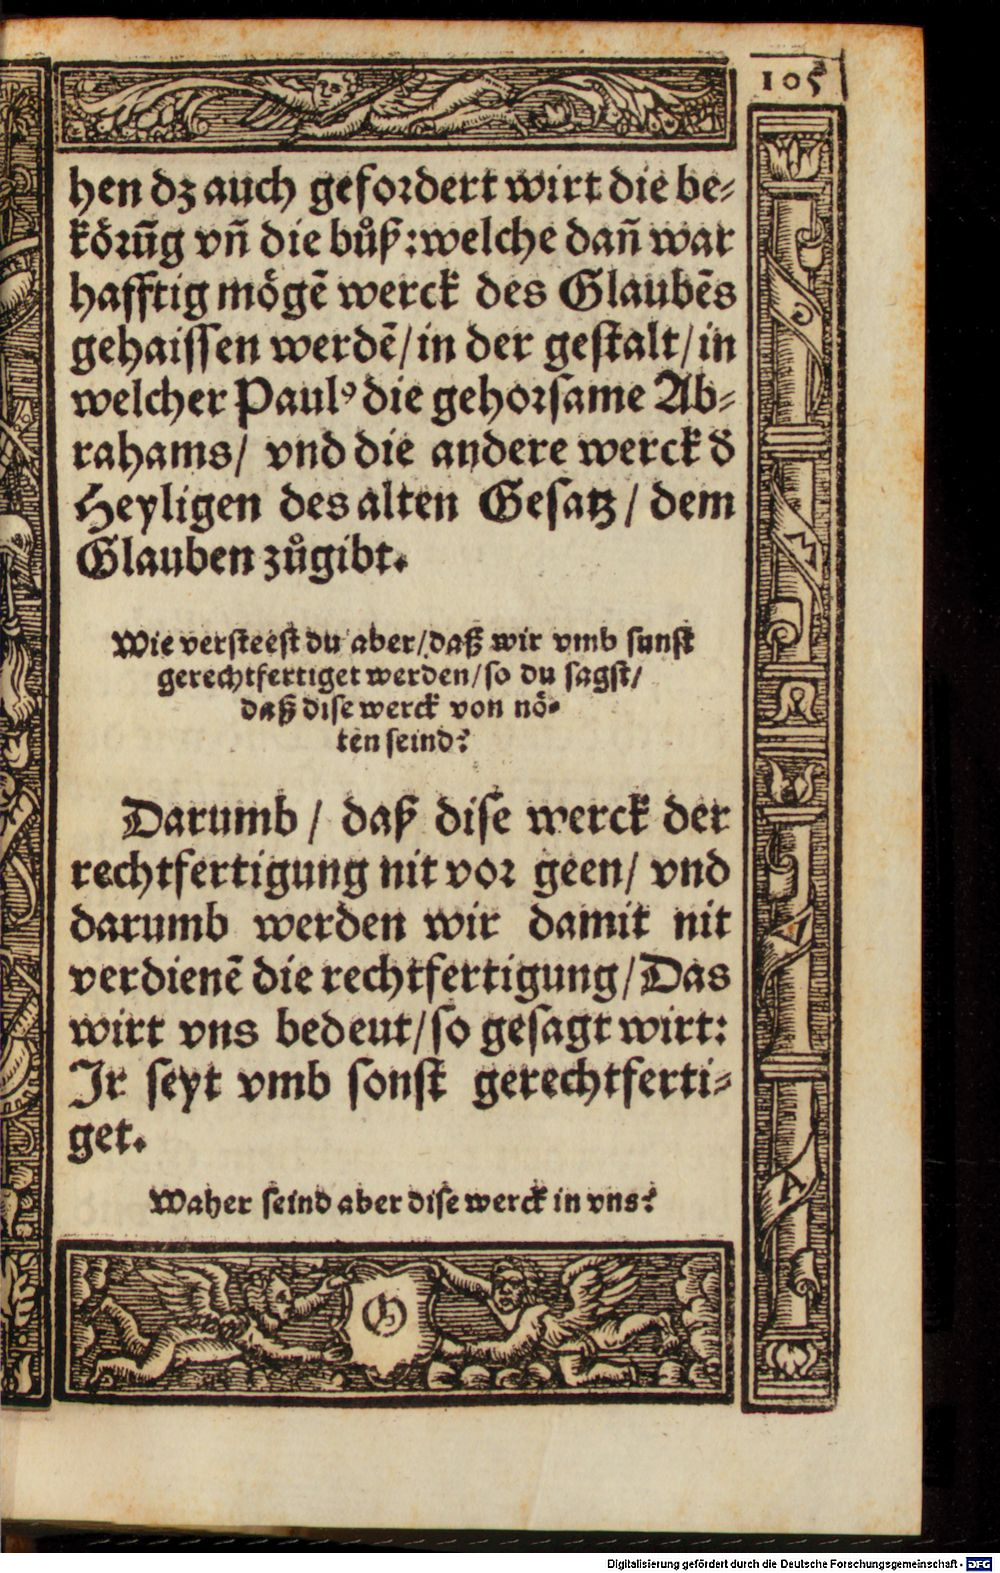 105
hen dz auch gefordert wirt die be⸗
körūg vn̄ die bůß: welche dan̄ war
hafftig mögē werck des Glaubēs
gehaissen werdē/ in der gestalt/ in
welcher Paulꝰ die gehorsame Ab⸗
rahams/ vnd die andere werck d̕
Heyligen des alten Gesatz/ dem
Glauben zůgibt.
Wie versteest du aber/ daß wir vmb sunst
gerechtfertiget werden/ so du sagst/
daß dise werck von nö⸗
ten seind?
Darumb/ daß dise werck der
rechtfertigung nit vor geen/ vnd
darumb werden wir damit nit
verdienē die rechtfertigung/ Das
wirt vns bedeut/ so gesagt wirt:
Ir seyt vmb sonst gerechtferti⸗
get.
Waher seind aber dise werck in vns?
G
M
A
Digitalisierung gefördert durch die Deutsche Forschungsgemeinschaft - DFG